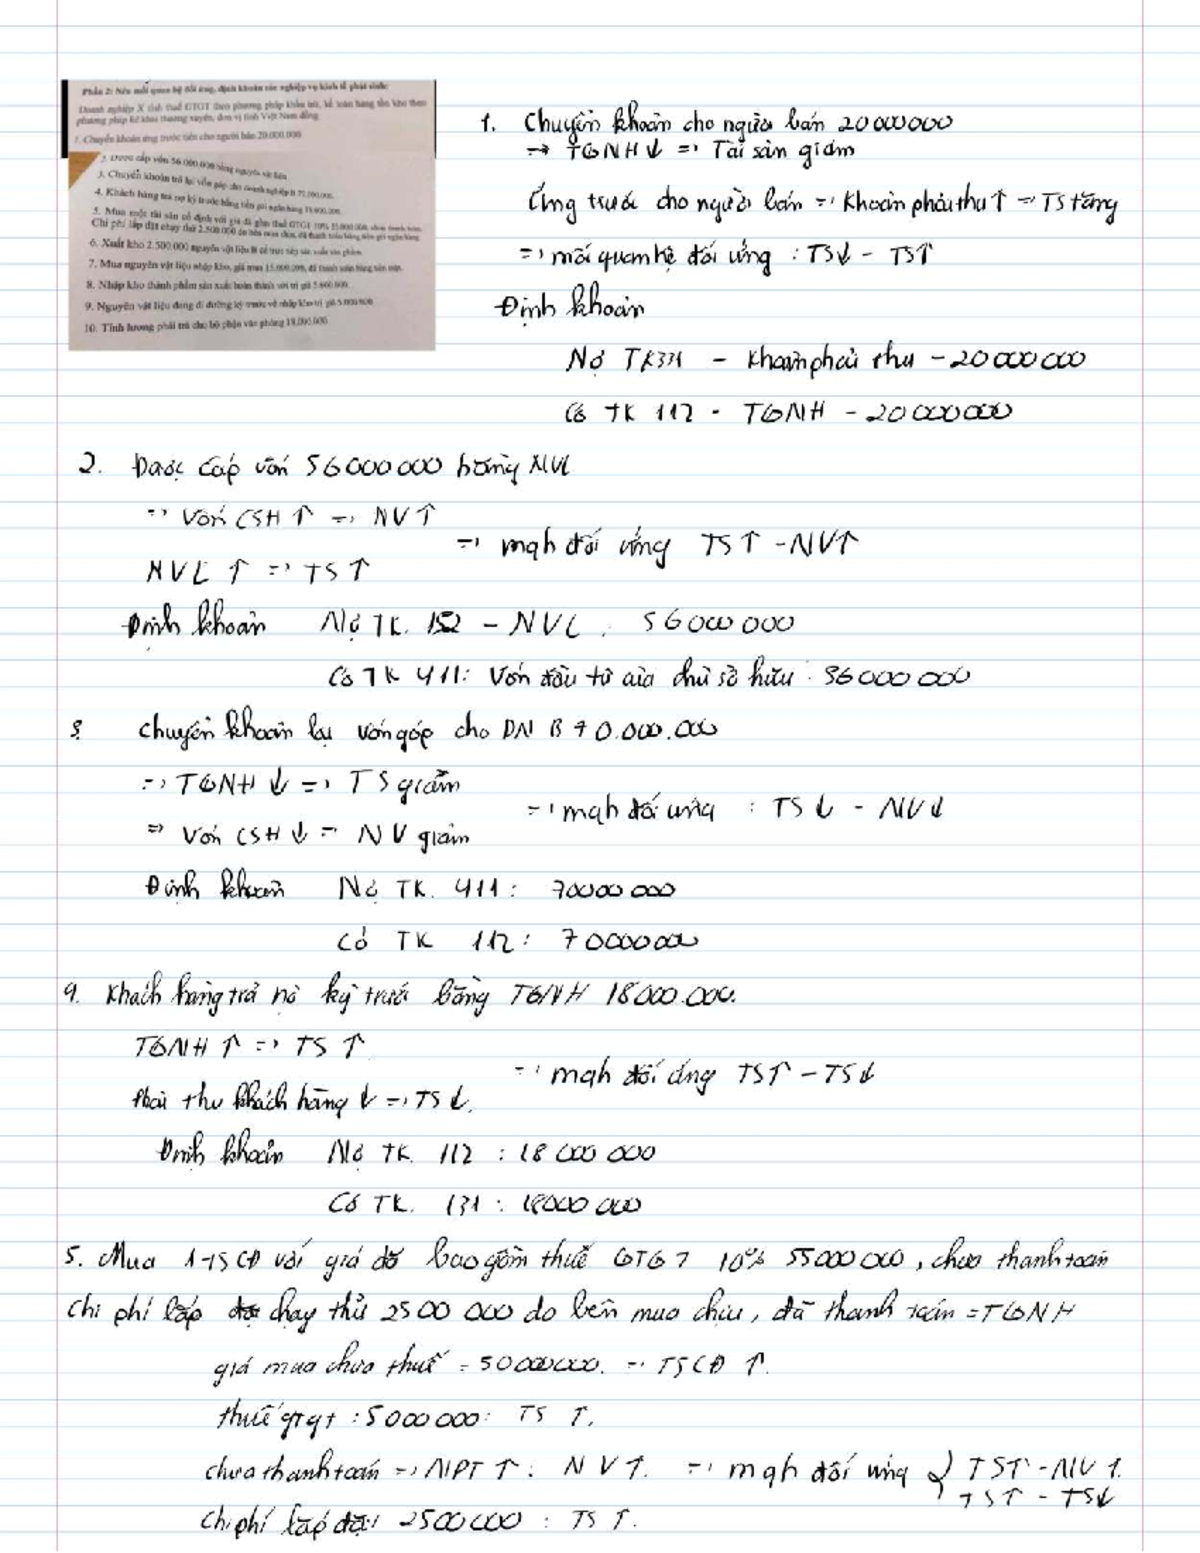 Phần 2: Nêu mối quan hệ đối ứng, định khoản các nghiệp vụ kinh tế phát sinh:
Doanh nghiệp X tính thuế GTGT theo phương pháp khấu trừ, kế toán hàng tồn kho theo
phương pháp kê khai thường xuyên, đơn vị tính Việt Nam đồng
1. Chuyển khoản ứng trước tiền cho người bán 20.000.000
2. Được cấp vốn 56.000.000 bằng nguyên vật liệu
3. Chuyển khoản trả lại vốn góp cho doanh nghiệp B 70.000.000
4. Khách hàng trả nợ kỳ trước bằng tiền gửi ngân hàng 18.000.000
5. Mua một tài sản cố định với giá đã gồm thuế GTGT 10% 55.000.000, chưa thanh toán
Chi phí lắp đặt chạy thử 2.500.000 do bên mua chịu, đã thanh toán bằng tiền gửi ngân hàng
6. Xuất kho 2.500.000 nguyên vật liệu để trực tiếp sản xuất sản phẩm
7. Mua nguyên vật liệu nhập kho, giá mua đã thanh toán bằng tiền mặt.
8. Nhập kho thành phẩm sản xuất hoàn thành với trị giá
9. Nguyên vật liệu đang đi đường kỳ trước về nhập kho trị giá
10. Tính lương phải trả cho bộ phận văn phòng 18.000.000
1. Chuyển khoản cho người bán 20000000
=> TGNH↓ => Tài sản giảm
Ứng trước cho người bán => Khoản phải thu ↑ => TS tăng
=> mối quan hệ đối ứng : TS↓ - TS↑
Định khoản
Nợ TK331 - Khoản phải thu - 20000000
Có TK 112 - TGNH - 20000000
2. Được cấp vốn 56000000 bằng NVL
=> Vốn CSH ↑ => NV↑
=> mqh đối ứng TS↑ - NV↑
NVL ↑ => TS↑
Định khoản Nợ TK. 152 - NVL : 56000000
Có TK 411: Vốn đầu tư của chủ sở hữu : 56000000
3. Chuyển khoản lại vốn góp cho DN B 70.000.000
=> TGNH ↓ => TS giảm
=> mqh đối ứng : TS↓ - NV↓
=> Vốn CSH ↓ = NV giảm
Định khoản Nợ TK. 411 : 70000000
Có TK 112 : 70000000
4. Khách hàng trả nợ kỳ trước bằng TGNH 18000.000.
TGNH ↑ => TS ↑
=> mqh đối ứng TS↑ - TS↓
Phải thu khách hàng ↓ => TS↓.
Định khoản Nợ TK. 112 : 18000000
Có TK. 131 : 18000000
5. Mua 1 TSCĐ với giá đã bao gồm thuế GTGT 10% 55000000, chưa thanh toán
Chi phí lắp đặt chạy thử 2500000 do bên mua chịu, đã thanh toán = TGNH
giá mua chưa thuế = 50000000. => TSCĐ ↑.
thuế gtgt : 5000000 : TS ↑.
chưa thanh toán => NPT ↑ : NV↑. => mqh đối ứng { TS↑ - NV↑.
TS↑ - TS↓
Chi phí lắp đặt 2500000 : TS ↑.